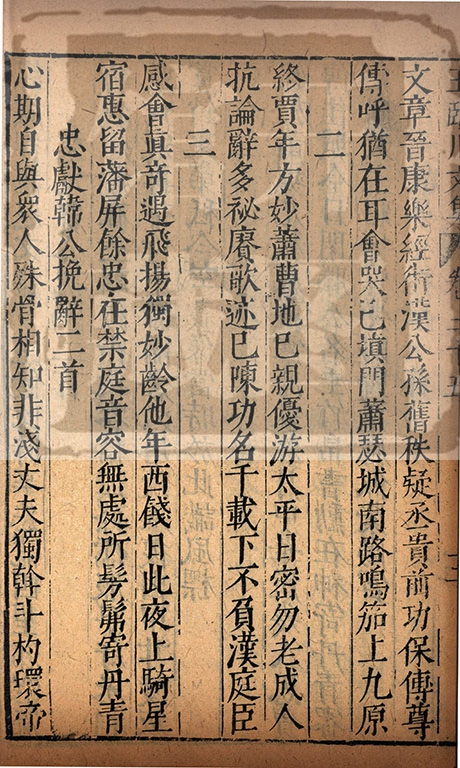 文章晉康樂經術漢公孫舊秩疑丞貴前功保傅尊
傳呼猶在耳會哭已塡門蕭瑟城南路鳴笳上九原
二
終賈年方妙蕭曹地已親優游太平日密勿老成人
抗論辭多祕賡歌迹已陳功名千載下不負漢庭臣
三
感會眞奇遇飛揚獨妙齡他年西餞日此夜上騎星
宿惠留藩屏餘忠在禁庭音容無處所髣髴寄丹青
忠獻韓公挽辭二首
心期自與衆人殊骨相知非淺丈夫獨斡斗杓環帝